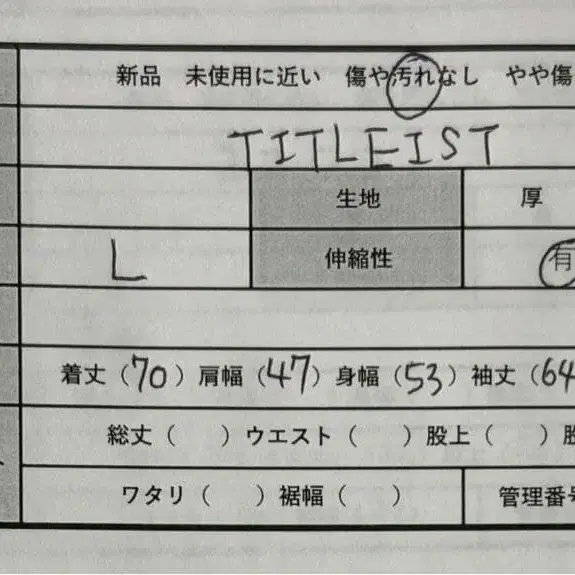 新品 未使用に近い 傷や汚れなし やや傷
TITLEIST
生地 厚
L 伸縮性 有
着丈(70)肩幅(47)身幅(53)袖丈(64
総丈( )ウエスト( )股上( )股
ワタリ( )裾幅( ) 管理番号